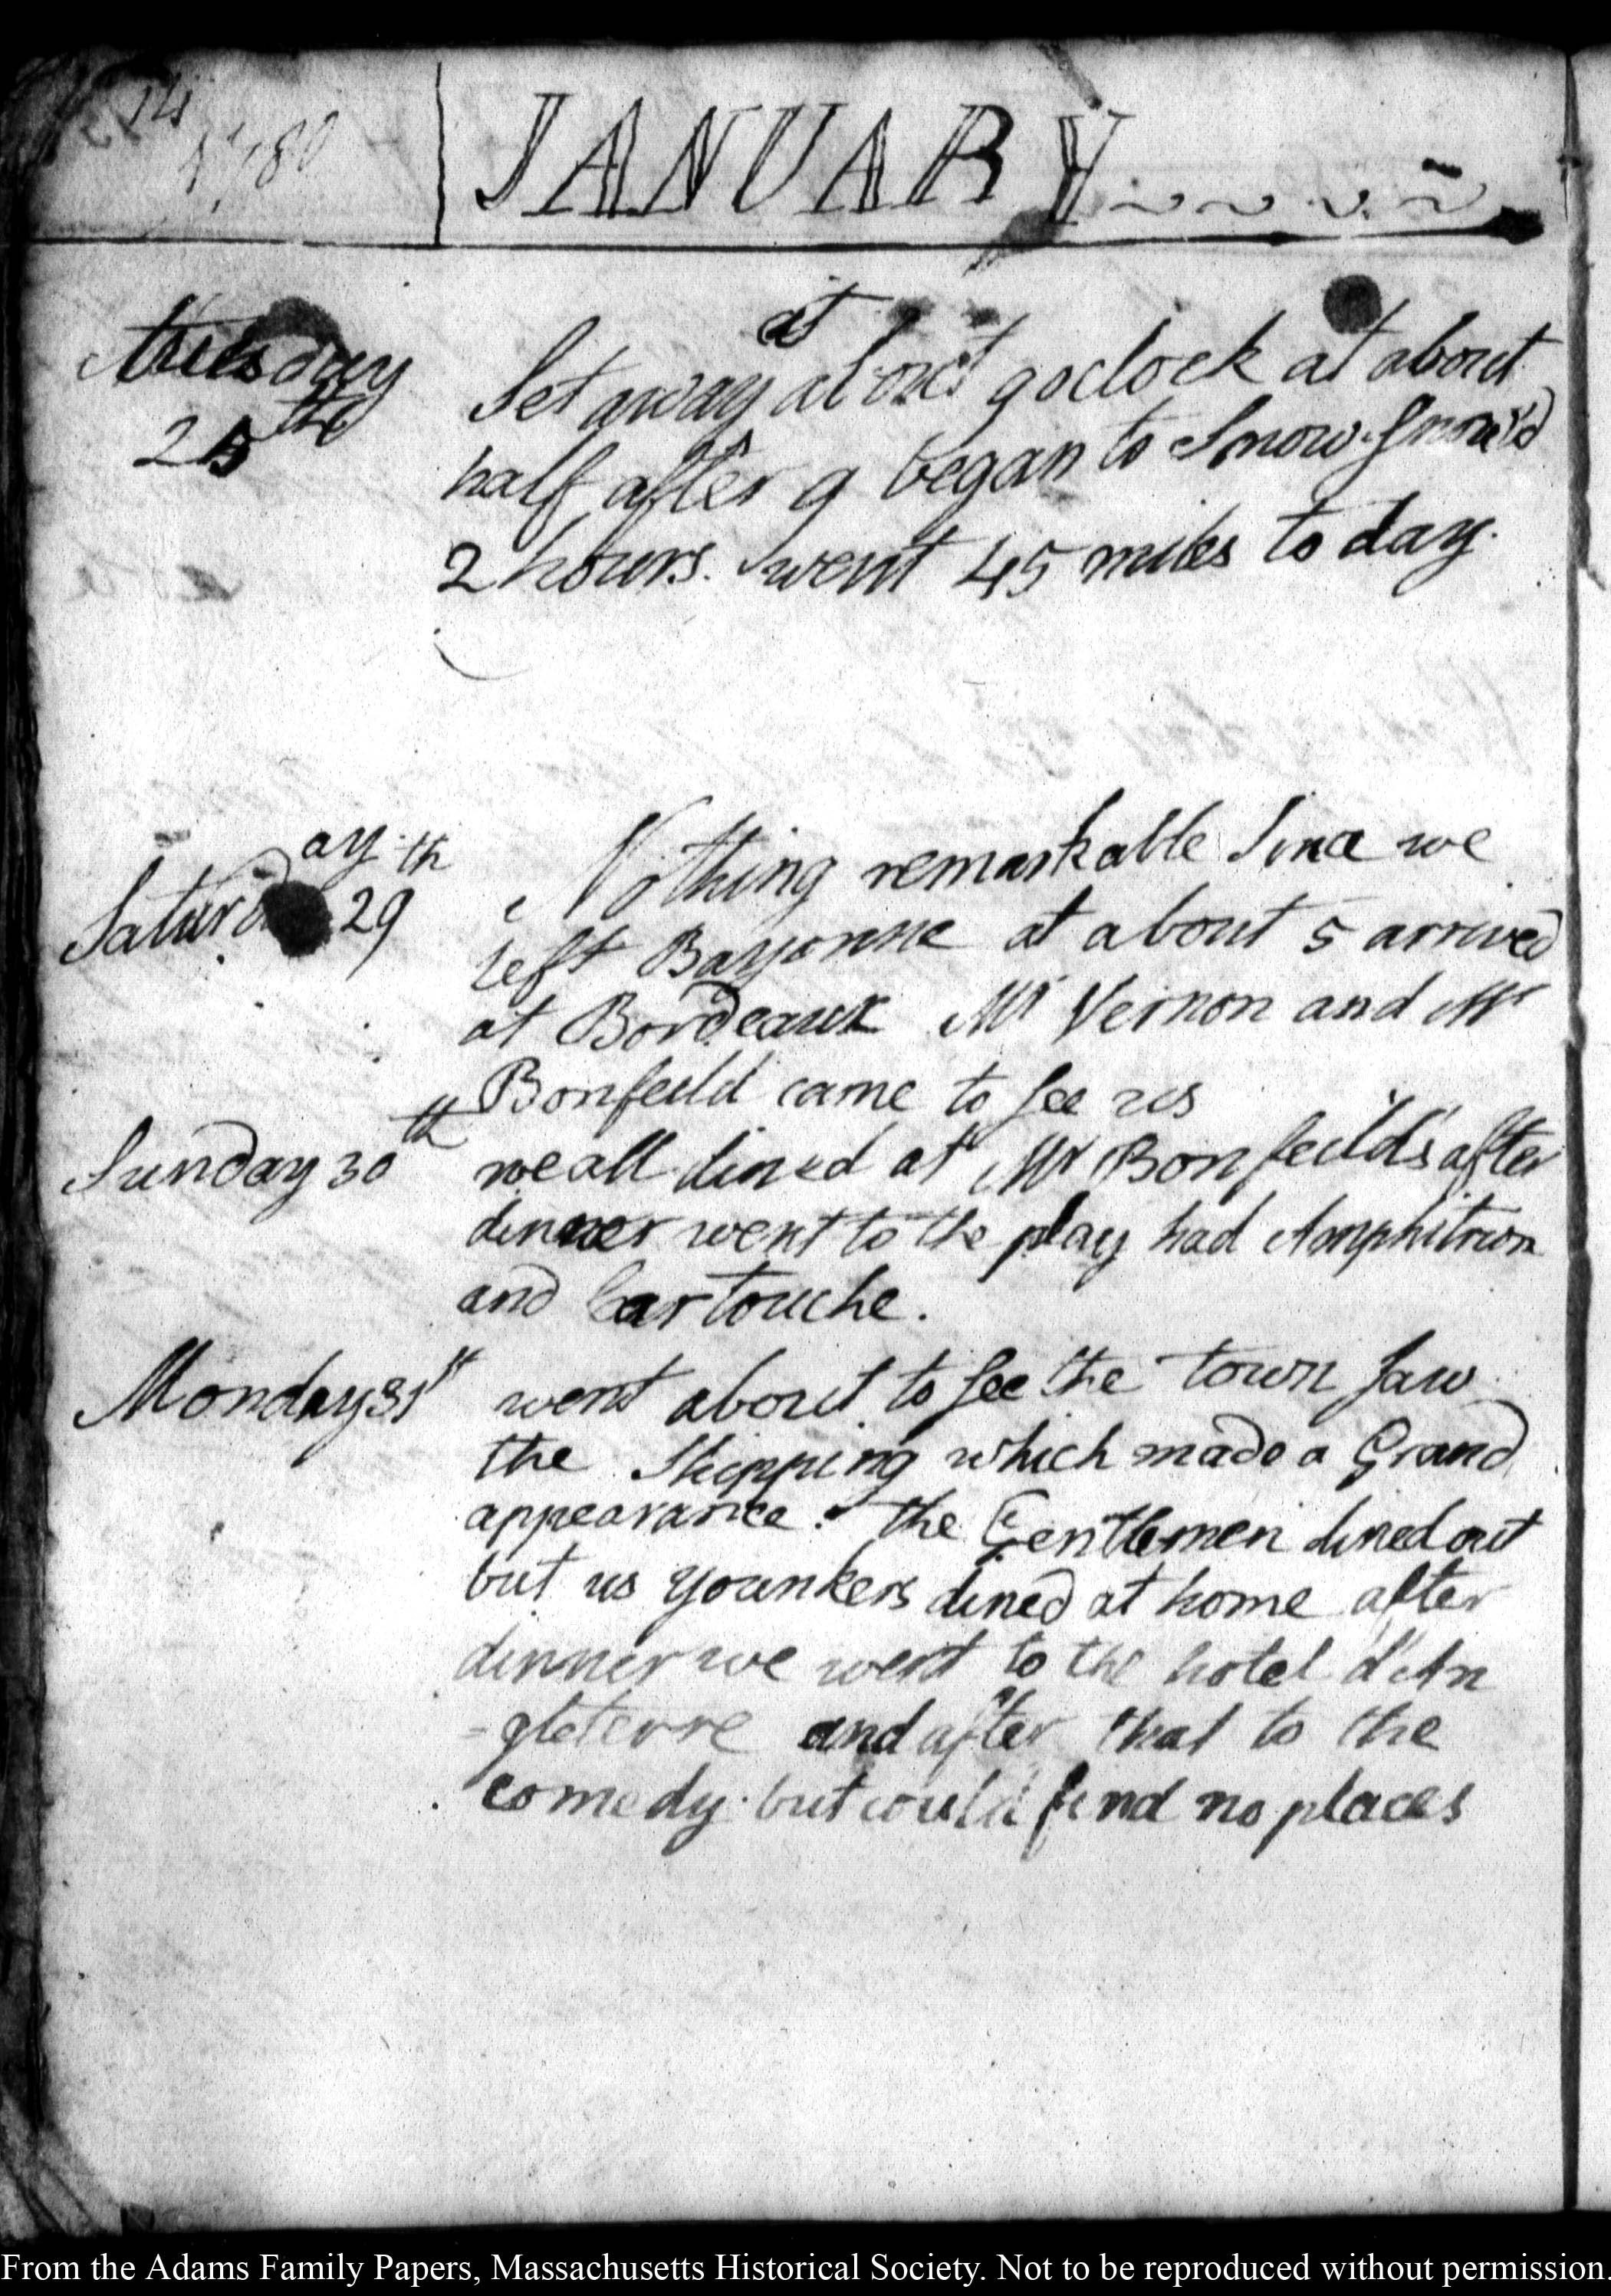 14
1780
JANUARY
tuesday
25th
at
Set away about 9 oclock at about
half after 9 began to Snow. Snow'd
2 hours. went 45 miles to day.
Saturday 29th
Nothing remarkable Since we
left Bayonne at about 5 arrived
at Bordeaux Mr Vernon and Mr
Bonfeild came to see us
Sunday 30th
we all dined at Mr Bonfeild's after
dinner went to the play had Amphitrion
and Cartouche.
Monday 31st
went about to see the town saw
the Shipping which made a Grand
appearance. the Gentlemen dined out
but us younkers dined at home after
dinner we went to the hotel d'An
=gleterre and after that to the
comedy. but could find no places
From the Adams Family Papers, Massachusetts Historical Society. Not to be reproduced without permission.